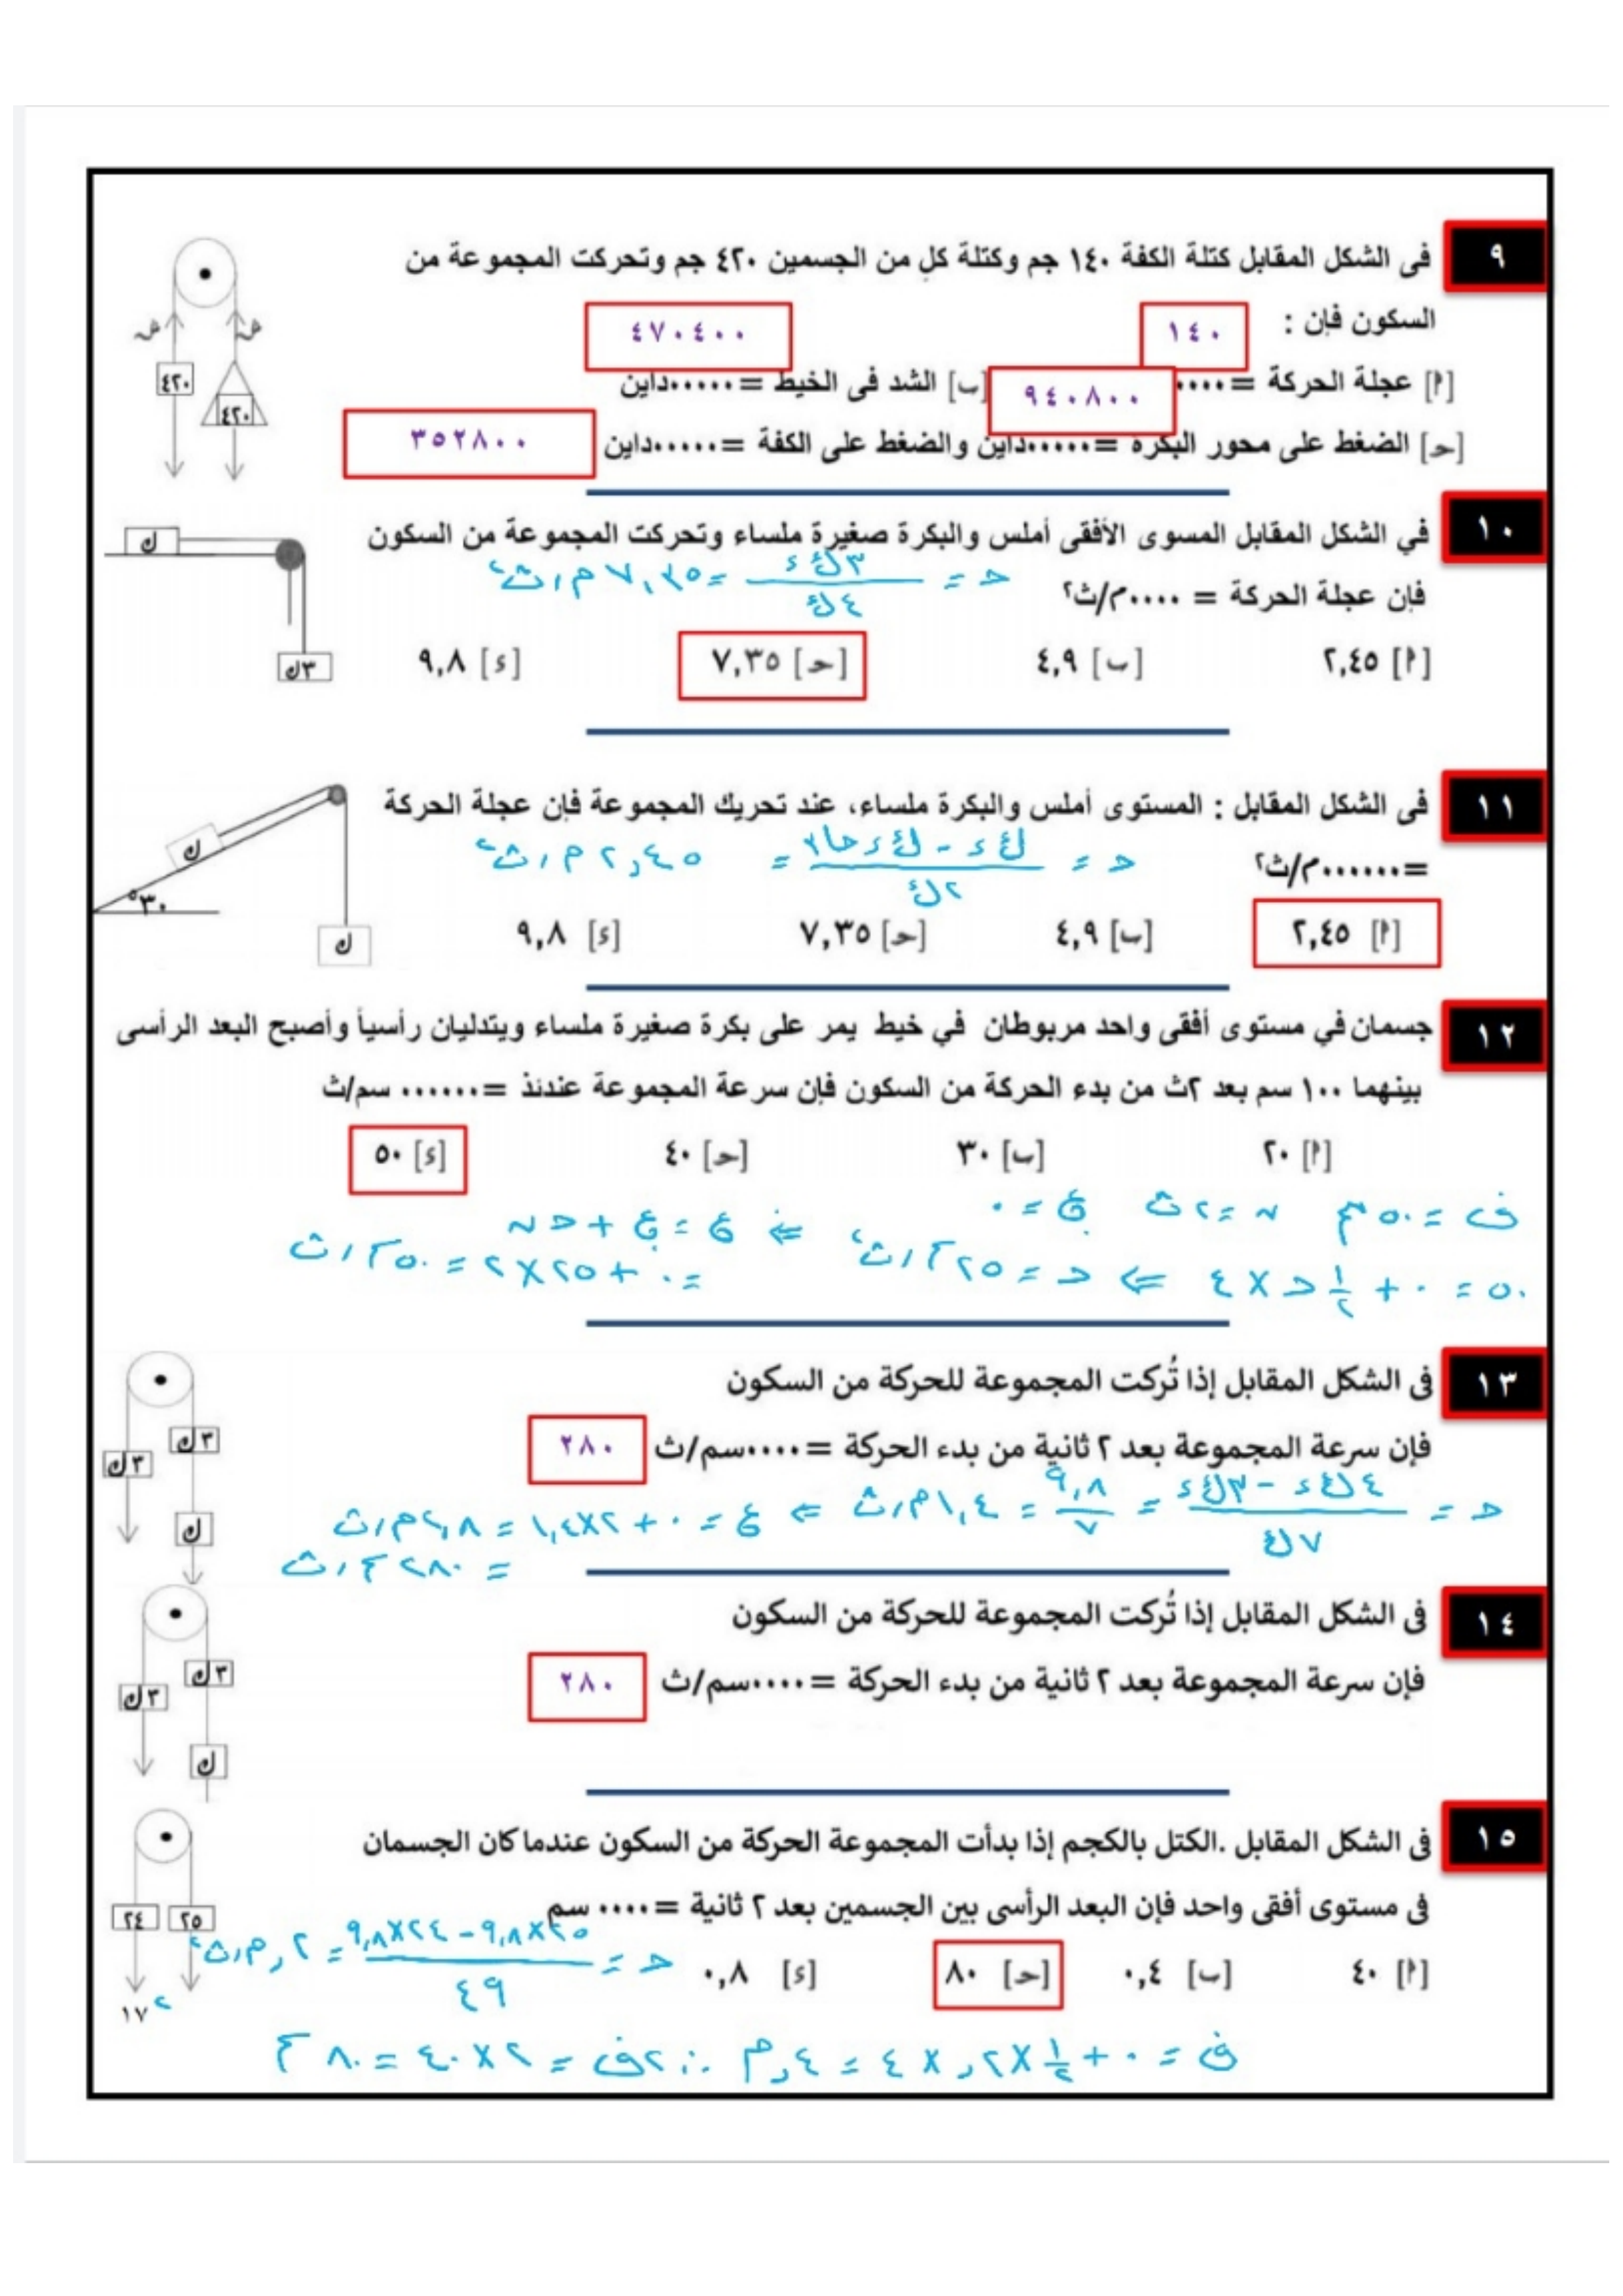 ٩
فى الشكل المقابل كتلة الكفة ١٤٠ جم وكتلة كل من الجسمين ٤٢٠ جم وتحركت المجموعة من
السكون فإن :
١٤٠
٤٧٠٤٠٠
[أ] عجلة الحركة =
[ب] الشد فى الخيط =٠٠٠٠٠داين
٩٤٠٨٠٠
[حـ] الضغط على محور البكرة =٠٠٠٠٠داين والضغط على الكفة =٠٠٠٠٠داين
٣٥٢٨٠٠
ش ش
٤٢٠ ٤٢٠
١٠
في الشكل المقابل المسوى الأفقى أملس والبكرة صغيرة ملساء وتحركت المجموعة من السكون
فإن عجلة الحركة = ٠٠٠٠م/ث٢
حـ = ٣ك ء / ٤ك = ٧,٣٥ م/ث٢
[أ] ٢,٤٥ [ب] ٤,٩ [حـ] ٧,٣٥ [ء] ٩,٨
ك
٣ك
١١
فى الشكل المقابل : المستوى أملس والبكرة ملساء، عند تحريك المجموعة فإن عجلة الحركة
=٠٠٠٠٠٠م/ث٢
= ٢,٤٥ م/ث٢
[أ] ٢,٤٥ [ب] ٤,٩ [حـ] ٧,٣٥ [ء] ٩,٨
ك
٣٠°
ك
١٢
جسمان في مستوى أفقى واحد مربوطان في خيط يمر على بكرة صغيرة ملساء ويتدليان رأسياً وأصبح البعد الرأسى
بينهما ١٠٠ سم بعد ٢ث من بدء الحركة من السكون فإن سرعة المجموعة عندئذ =٠٠٠٠٠٠ سم/ث
[أ] ٢٠ [ب] ٣٠ [حـ] ٤٠ [ء] ٥٠
ف = ٥٠ سم ن = ٢ ث ع. = ٠
٥٠ = ٠ + ١/٢ حـ × ٤ ⇐ حـ = ٢٥ سم/ث٢ ⇐ ع = ع. + حـ ن
= ٠ + ٢٥ × ٢ = ٥٠ سم/ث
١٣
فى الشكل المقابل إذا تُركت المجموعة للحركة من السكون
فإن سرعة المجموعة بعد ٢ ثانية من بدء الحركة =٠٠٠٠سم/ث
٢٨٠
حـ = ٤ك ء - ٣ك ء / ٧ك = ٩,٨ / ٧ = ١,٤ م/ث ⇐ ع = ٠ + ٢×١,٤ = ٢,٨ م/ث
= ٢٨٠ سم/ث
٣ك
٣ك
ك
١٤
فى الشكل المقابل إذا تُركت المجموعة للحركة من السكون
فإن سرعة المجموعة بعد ٢ ثانية من بدء الحركة =٠٠٠٠سم/ث
٢٨٠
٣ك
٣ك
ك
١٥
فى الشكل المقابل .الكتل بالكجم إذا بدأت المجموعة الحركة من السكون عندما كان الجسمان
فى مستوى أفقى واحد فإن البعد الرأسى بين الجسمين بعد ٢ ثانية =٠٠٠٠ سم
حـ = ٢٥×٩,٨ - ٢٤×٩,٨ / ٤٩ = ,٢ م/ث٢
[أ] ٤٠ [ب] ٠,٤ [حـ] ٨٠ [ء] ٠,٨
٢٤ ٢٥
١٧
ف = ٠ + ١/٢ × ,٢ × ٤ = ,٤ م ∴ ٢ف = ٢ × ٤٠ = ٨٠ سم